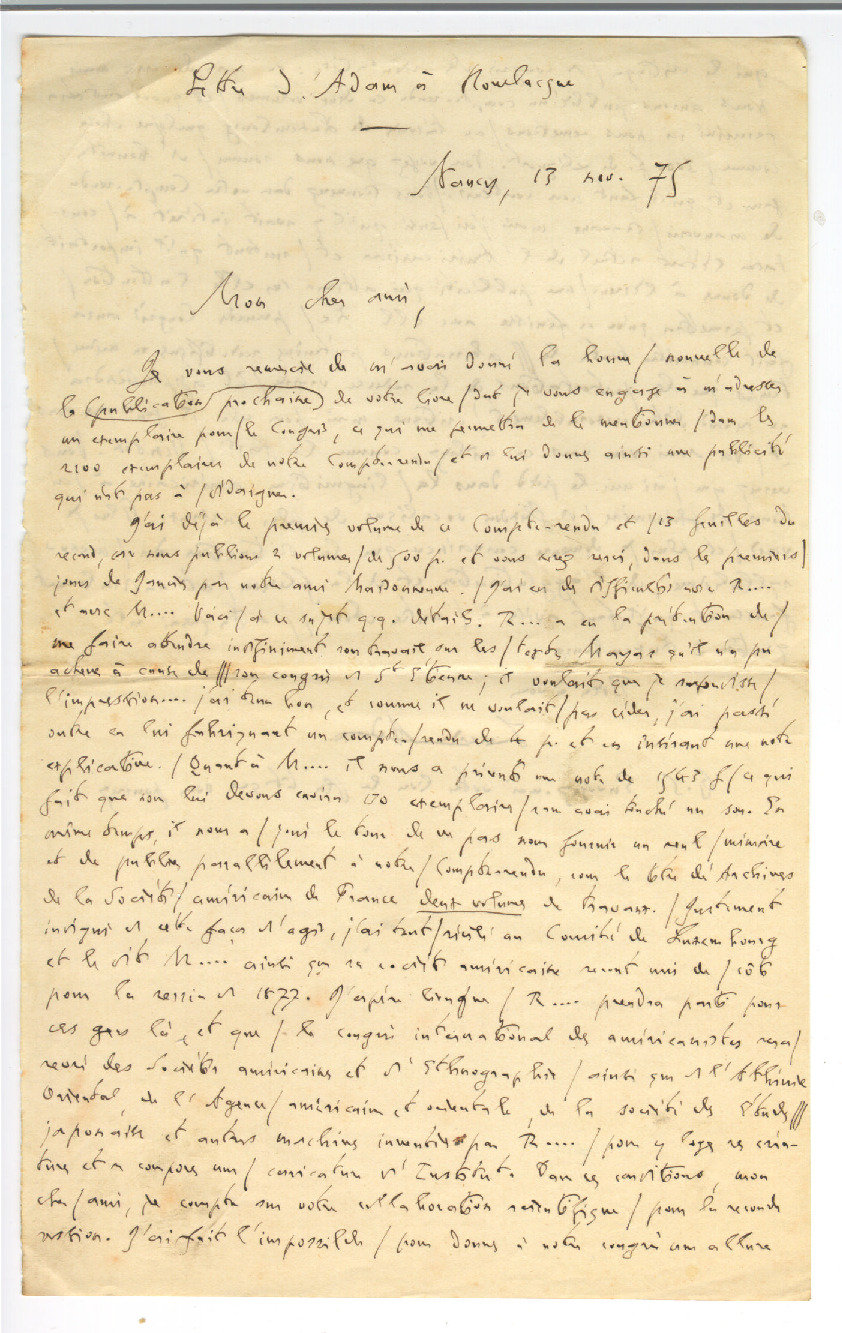 Lettre d'Adam à
Nancy, 13 nov. 75
Mon cher ami,
Je vous remercie de m'avoir donné la bonne / nouvelle de
la (publication prochaine) de votre livre / dont je vous engage à m'adresser
un exemplaire pour / le Congrès, ce qui me permettra de le mentionner / dans les
2100 exemplaires de notre Compte-rendu / et de lui donner ainsi une publicité
qui n'est pas à / dédaigner.
J'ai déjà le premier volume de ce Compte-rendu et / 13 feuilles du
second, car nous publions 2 volumes / de 500 p. et vous serez servi, dans les premiers /
jours de Janvier par notre ami Maisonneuve. / J'ai eu des difficultés avec R....
et avec M.... Voici / à ce sujet q.q. détails. R.... a eu la prétention de /
me faire attendre indéfiniment son travail sur les / textes Mayas qu'il n'a pu
achever à cause de /// son congrès de St Etienne ; il voulait que je /
l'impression.... j'ai tenu bon, et comme il ne voulait / pas céder, j'ai passé
outre en lui fabriquant un compte / rendu de 4 p. et en insérant une note
explicative. / Quant à M.... il nous a présenté une note de 1543 f / ce qui
fait que nous lui devons environ 150 exemplaires / sans avoir touché un sou. En
même temps, il nous a / joué le tour de ne pas nous fournir un seul / mémoire
et de publier parallèlement à notre / Compte-rendu, sous le titre des Archives
de la Société / américaine de France deux volumes de travaux. / Justement
indigné de cette façon d'agir, j'ai tout / révélé au Comité de Luxembourg
et le dit M.... ainsi que sa société américaine seront mis de / côté
pour la session de 1877. J'espère bien que / R.... prendra parti pour
ces gens là, et que / le congrès international des américanistes sera /
des Sociétés américaines et d'Ethnographie / ainsi que de l'Athénée
Oriental, de l'Agence / américaine et orientale, de la société des Etudes ///
japonaises et autres machines inventées par R.... / pour y loger ses créa-
tures et se composer une / caricature d'Institut. Dans ces conditions, mon
cher / ami, je compte sur votre collaboration scientifique / pour la seconde
session. J'ai fait l'impossible / pour donner à notre congrès une allure